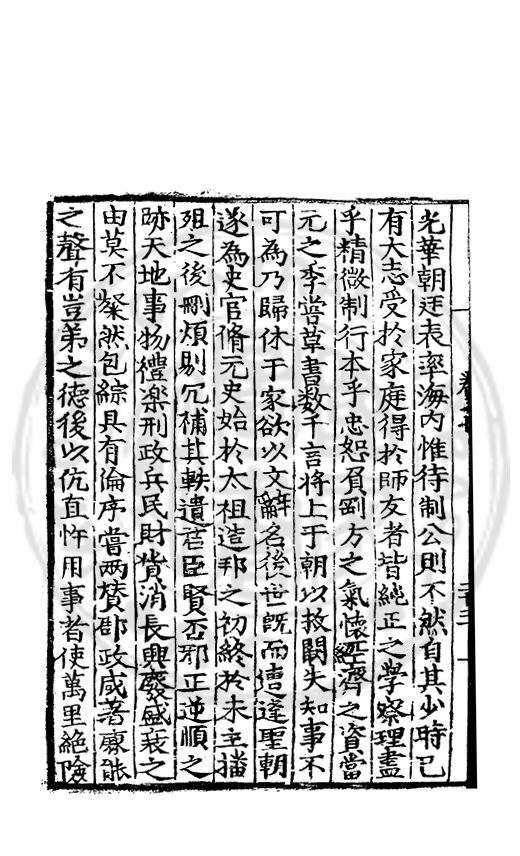 光華朝廷表率海内惟待制公則不然自其少時已
有大志受於家庭得於師友者皆純正之學察理盡
乎精微制行本乎忠恕負剛方之氣懷經濟之資當
元之季嘗草書数千言将上于朝以救闕失知事不
可為乃歸休于家欲以文辭名後世既而遭逢聖朝
遂為史官脩元史始於太祖造邦之初終於末主播
殂之後刪煩剔冗補其軼遺君臣賢否邪正逆順之
跡天地事物禮楽刑政兵民財貨消長興廢盛衰之
由莫不粲然包綜具有倫序嘗两賛郡政咸著廉能
之聲有豈弟之德後以伉直忤用事者使萬里絶險